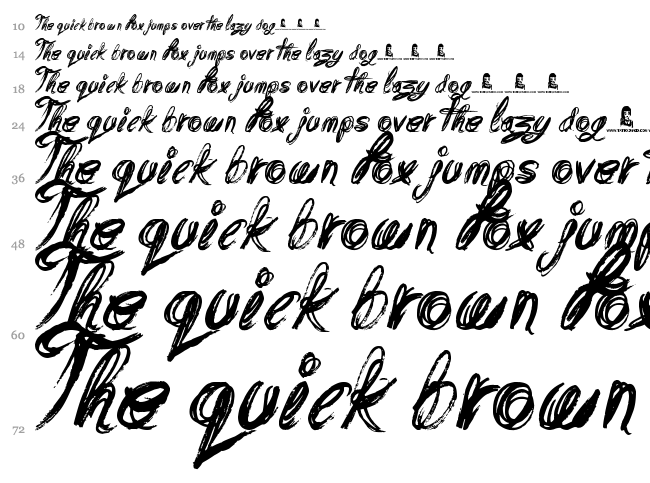 10 The quick brown fox jumps over the lazy dog
14 The quick brown fox jumps over the lazy dog
18 The quick brown fox jumps over the lazy dog
24 The quick brown fox jumps over the lazy dog
36 The quick brown fox jumps over
48 The quick brown fox jump
60 The quick brown fo
72 The quick brown